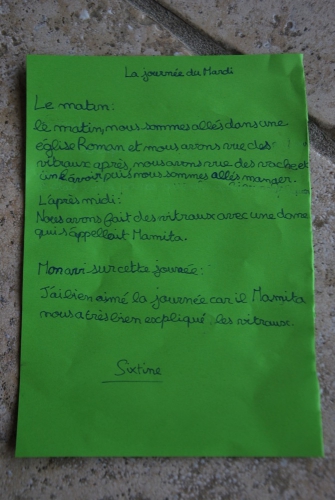 La journée du Mardi
Le matin:
le matin, nous sommes allés dans une
église Roman et nous avons vue des
vitraux après, nous avons vue des vache et
un lavoir puis nous sommes allés manger.
L'après midi:
Nous avons fait des vitraux avec une dame
qui s'appellait Mamita.
Mon avi sur cette journée:
J'ai bien aimé la journée car il Mamita
nous a très bien expliqué les vitraux.
Sixtine